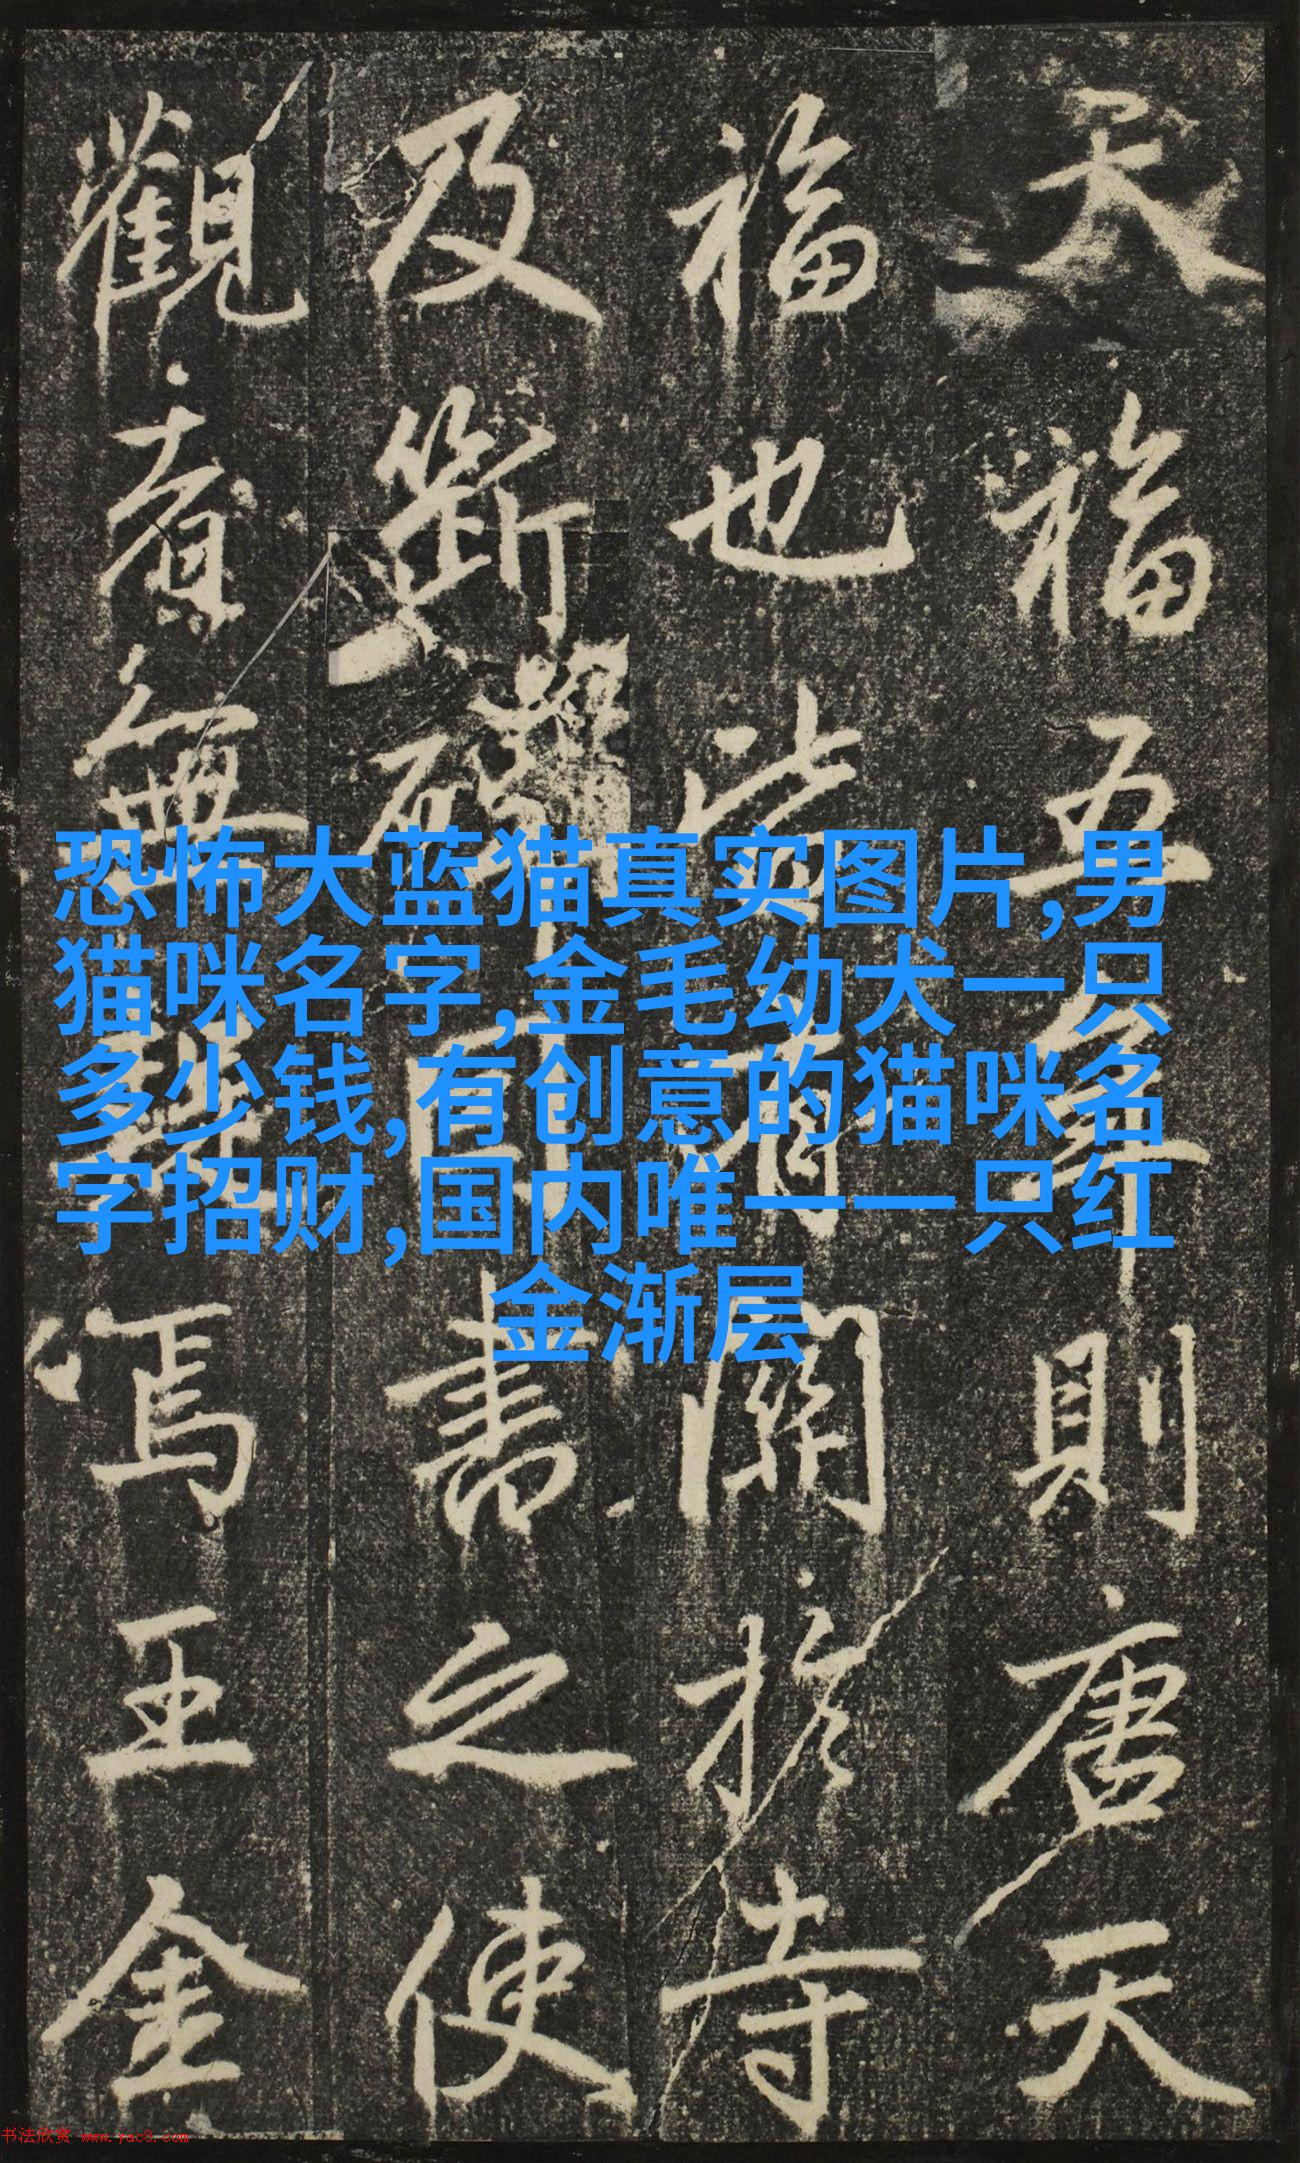 恐怖大蓝猫真实图片,男
猫咪名字,金毛幼犬一只
多少钱,有创意的猫咪名
字招财,国内唯一一只红
金渐层
天福五年則唐天
福也皆有關於寺
及斷碑因書之使
觀者無疑焉王金
书法欣赏 www.yac8.com